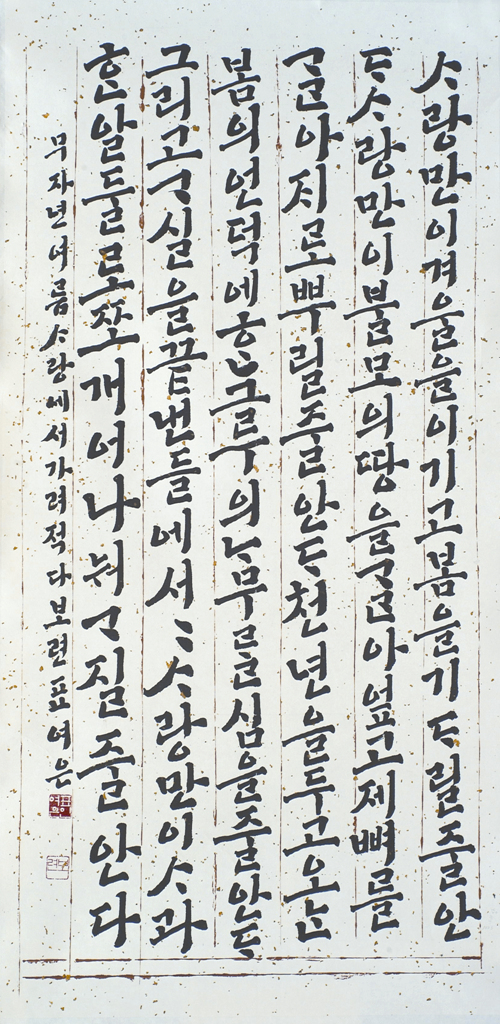 ᄉᆞ랑만이겨울을이기고봄을기ᄃᆞ릴줄안
ᄃᆞᄉᆞ랑만이불모의땅을ᄀᆞᆯ아엎고제뼈를
ᄀᆞᆯ아지로뿌릴줄안ᄃᆞ천년을두고오ᄂᆞᆯ
봄의언덕에ᄒᆞᆫ그루의ᄂᆞ무ᄅᆞᆯ심을줄안ᄃᆞ
그리고ᄀᆞ실을끝낸들에서ᄉᆞ랑만이ᄉᆞ과
ᄒᆞᆫ알둘로쪼개어나눠ᄀᆞ질줄안다
무자년여름ᄉᆞ랑에서가려적다보련표여은